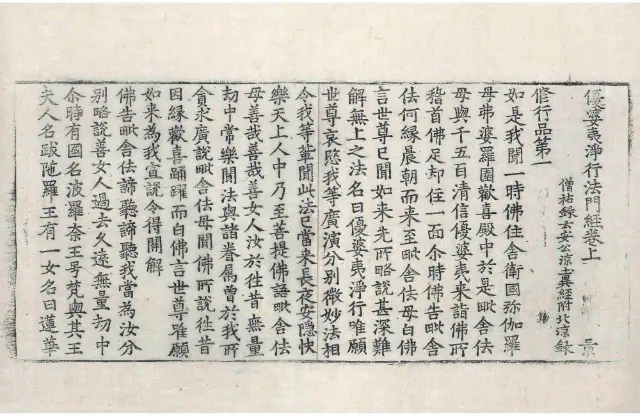 優婆夷淨行法門經卷上 景
僧祐錄云安公涼土異經附北涼錄
修行品第一
如是我聞一時佛住舍衛國弥伽羅
母弗婆羅園歡喜殿中於是毗舍佉
母與千五百清信優婆夷来詣佛所
稽首佛足却住一面尒時佛告毗舍
佉何緣晨朝而来至毗舍佉母白佛
言世尊已聞如来先所略說甚深難
解無上之法名曰優婆夷淨行唯願
世尊哀愍我等廣演分別微妙法相
令我等輩聞此法已當来長夜安隱快
樂天上人中乃至菩提佛語毗舍佉
母善哉善哉善女人汝於往昔無量
劫中常樂聞法與諸眷屬曽於我所
貪求廣說毗舍佉母聞佛所說往昔
因緣歡喜踊躍而白佛言世尊唯願
如来為我宣說令得開解
佛告毗舍佉諦聽諦聽我當為汝分
別略說善女人過去久遠無量劫中
尒時有國名波羅奈王号梵與其王
夫人名跋陁羅王有一女名曰蓮華